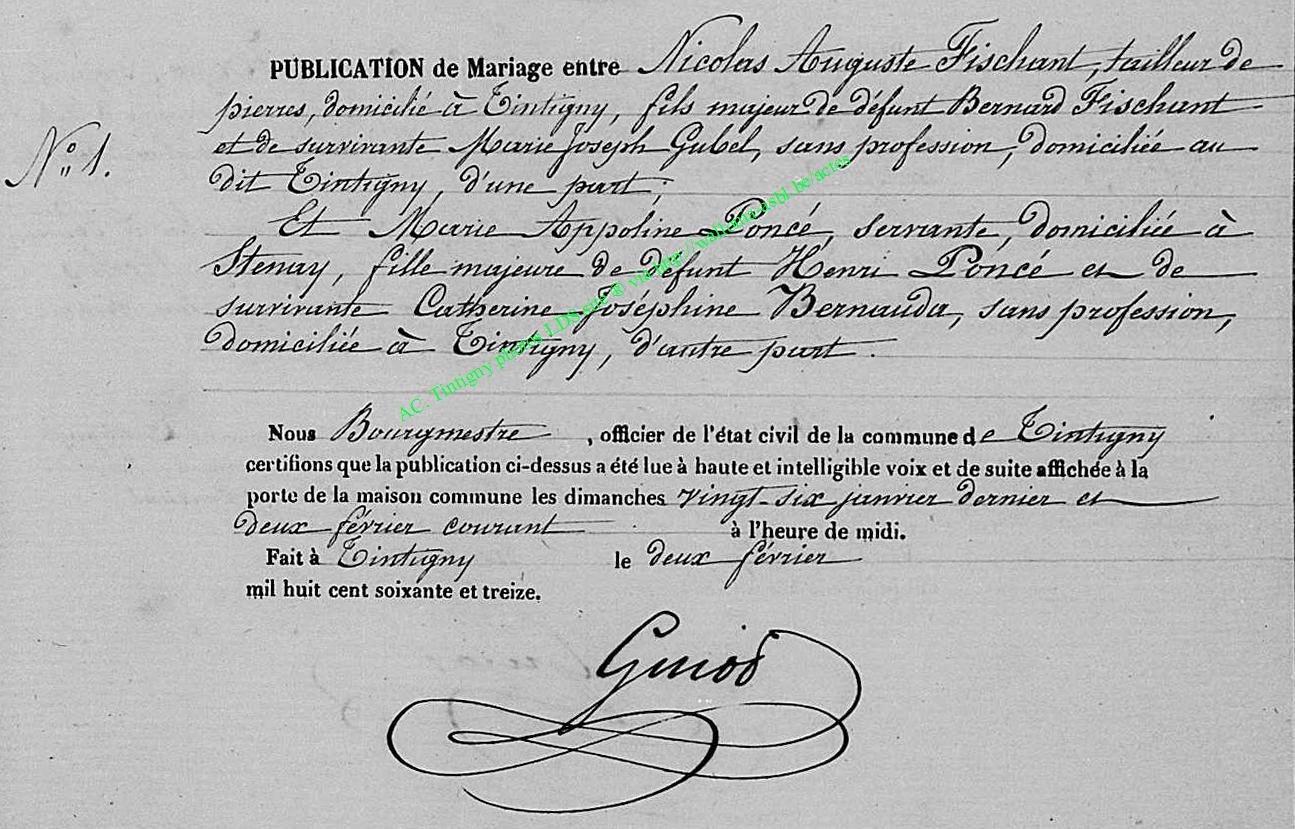 PUBLICATION de Mariage entre Nicolas Auguste Fischant, tailleur de
pierres, domicilié à Tintigny, fils majeur de défunt Bernard Fischant
N° 1. et de survivante Marie Joseph Gubel, sans profession, domiciliée au
dit Tintigny, d'une part;
Et Marie Appoline Poncé, servante, domiciliée à
Stenay, fille majeure de défunt Henri Poncé et de
survivante Catherine Joséphine Bernauda, sans profession,
domiciliée à Tintigny, d'autre part.
AC. Tintigny photos LDS site @ via http://wallonia-asbl.be/actes
Nous Bourgmestre, officier de l'état civil de la commune de Tintigny
certifions que la publication ci-dessus a été lue à haute et intelligible voix et de suite affichée à la
porte de la maison commune les dimanches vingt-six janvier dernier et
deux février courant à l'heure de midi.
Fait à Tintigny le deux février
mil huit cent soixante et treize.